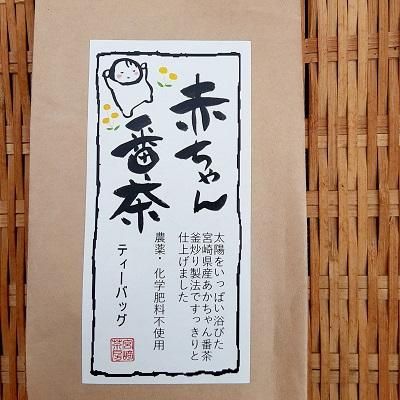 赤ちゃん
番茶
太陽をいっぱい浴びた
宮崎県産あかちゃん番茶
釜炒り製法ですっきりと
仕上げました
農薬・化学肥料不使用
ティーバッグ